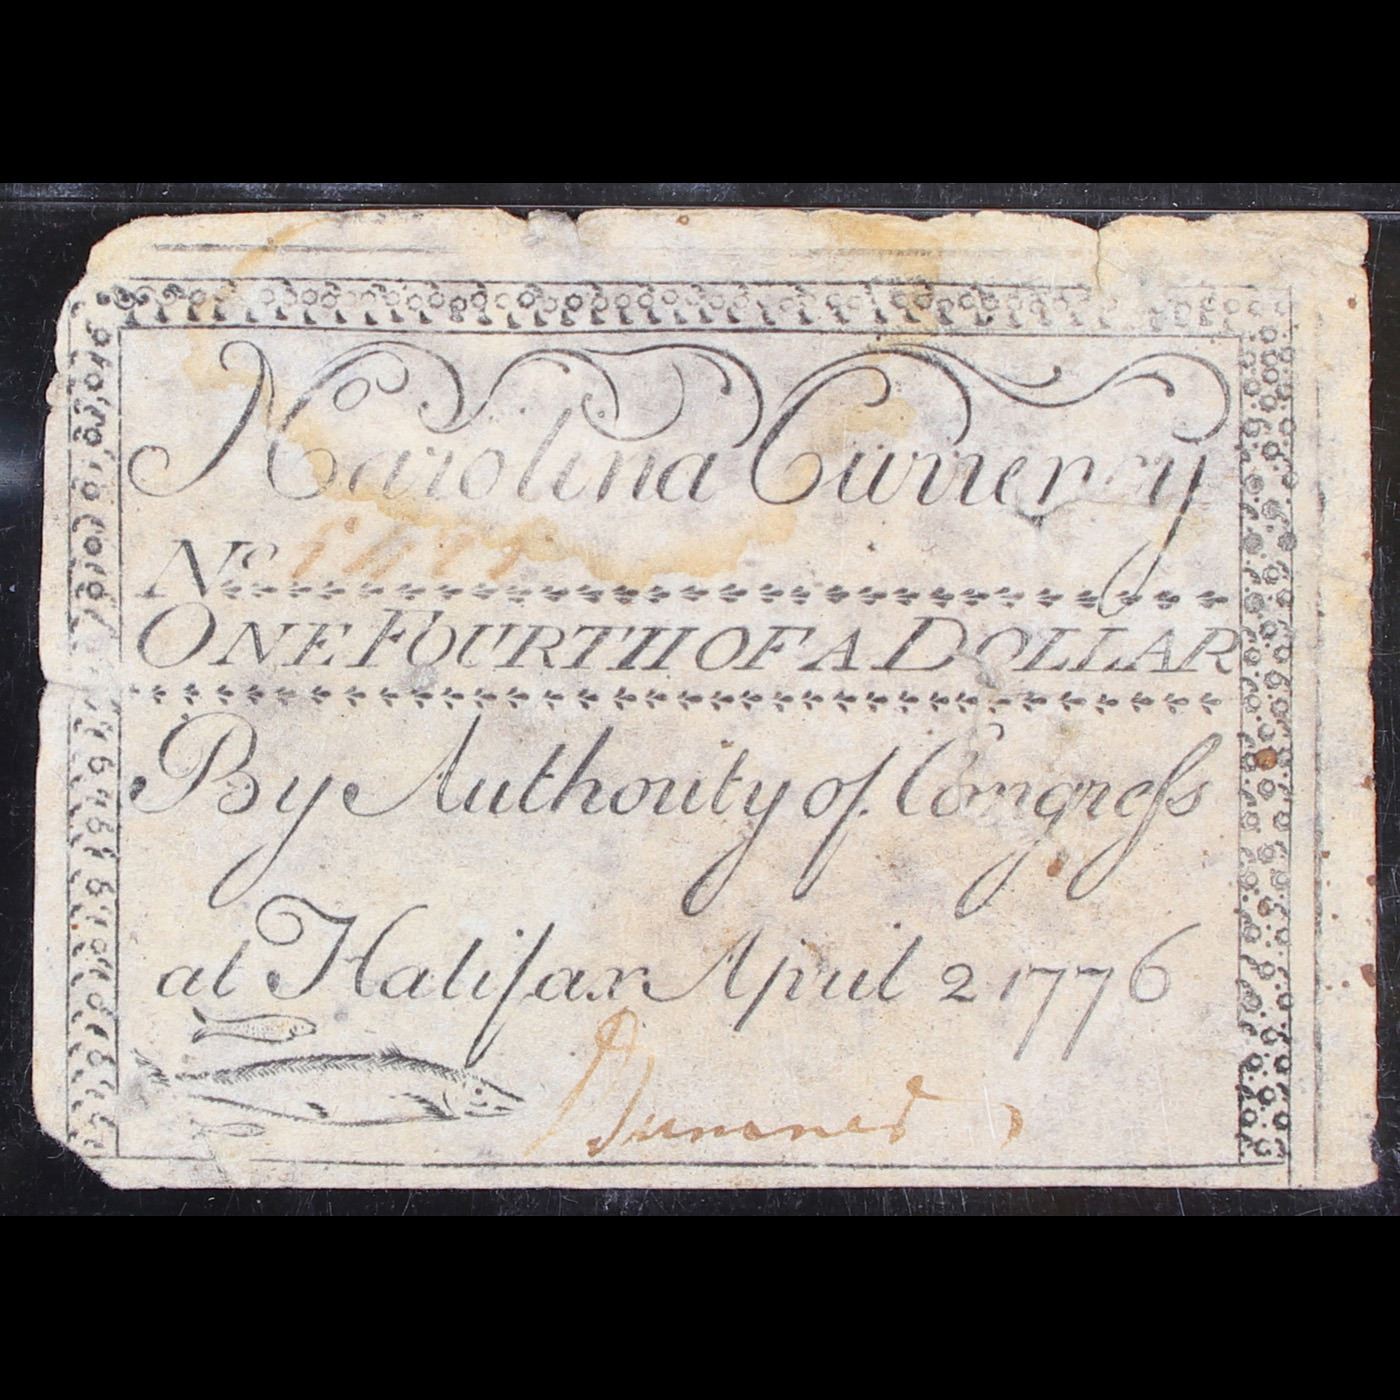 No Carolina Currency
No
ONE FOURTH OF A DOLLAR
By Authority of Congress
at Halifax April 2 1776